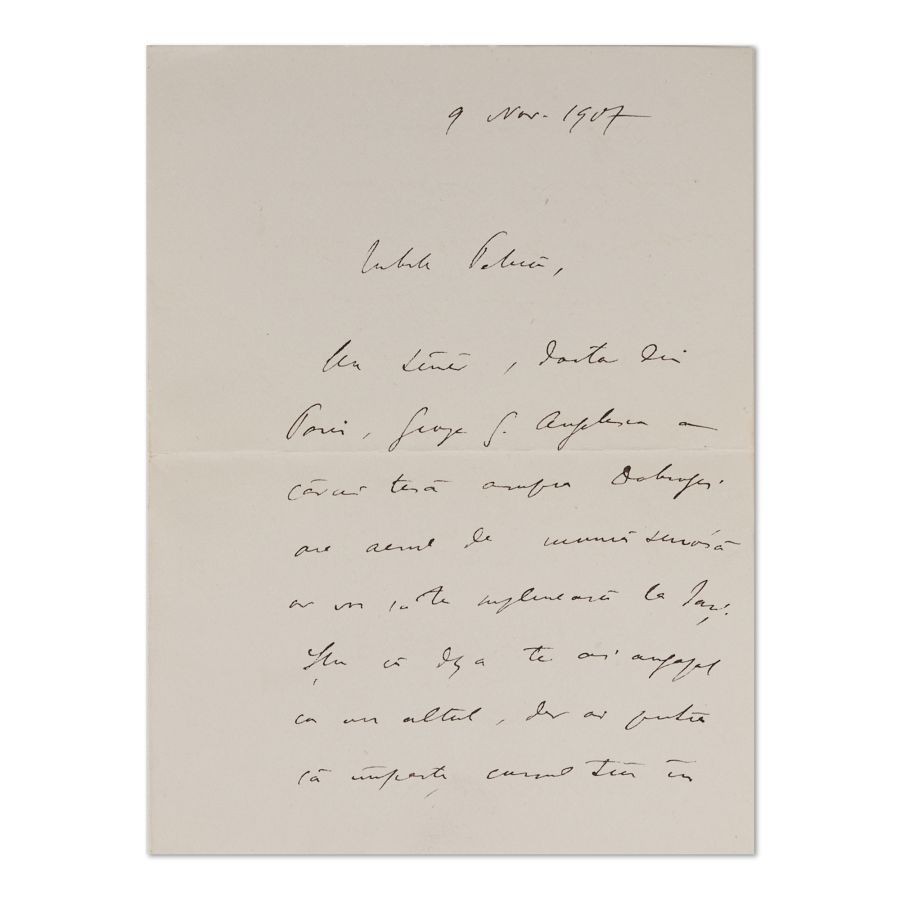 9 Nov. 1907
Iubite Petrică,
Un tânăr, doctor din
Paris, George G. Angelescu a
cărui tesă asupra Dobrogei
are aerul de muncă serioasă
ar vrea să te suplinească la Iaşi.
Ştiu că deja te ai angajat
cu un altul, dar ai putea
să împarți cursul tău în